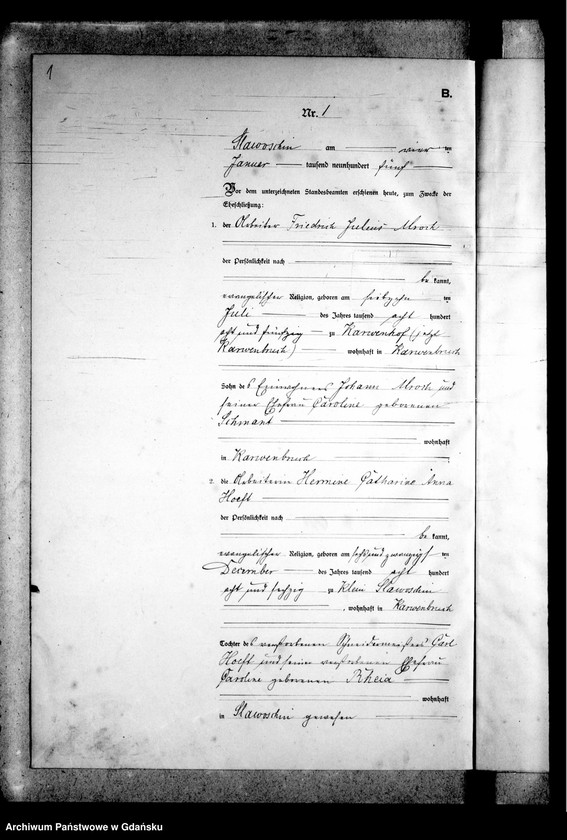 1
B.
Nr. 1
Slawoschin am vier ten
Januar tausend neunhundert fünf
Vor dem unterzeichneten Standesbeamten erschienen heute, zum Zwecke der
Eheschließung:
1. der Arbeiter Friedrich Julius
der Persönlichkeit nach
be kannt,
evangelischer Religion, geboren am siebzehn ten
Juli des Jahres tausend acht hundert
acht und fünfzig zu Karwenhof (jetzt
Karwenbruch) wohnhaft in Karwenbruch
Sohn des Einwohners Johann und
seiner Ehefrau Caroline geborenen
Schmant
wohnhaft
in Karwenbruch
2. die Arbeiterin Hermine Catharina Anna
Hoeft
der Persönlichkeit nach
be kannt,
evangelischer Religion, geboren am sechsundzwanzigs ten
December des Jahres tausend acht hundert
acht und sechzig zu Klein Slawoschin
, wohnhaft in Karwenbruch
Tochter des verstorbenen Schneidermeisters Carl
Hoeft und seiner verstorbenen Ehefrau
Caroline geborenen Rheia
wohnhaft
in Slawoschin gewesen
Archiwum Państwowe w Gdańsku